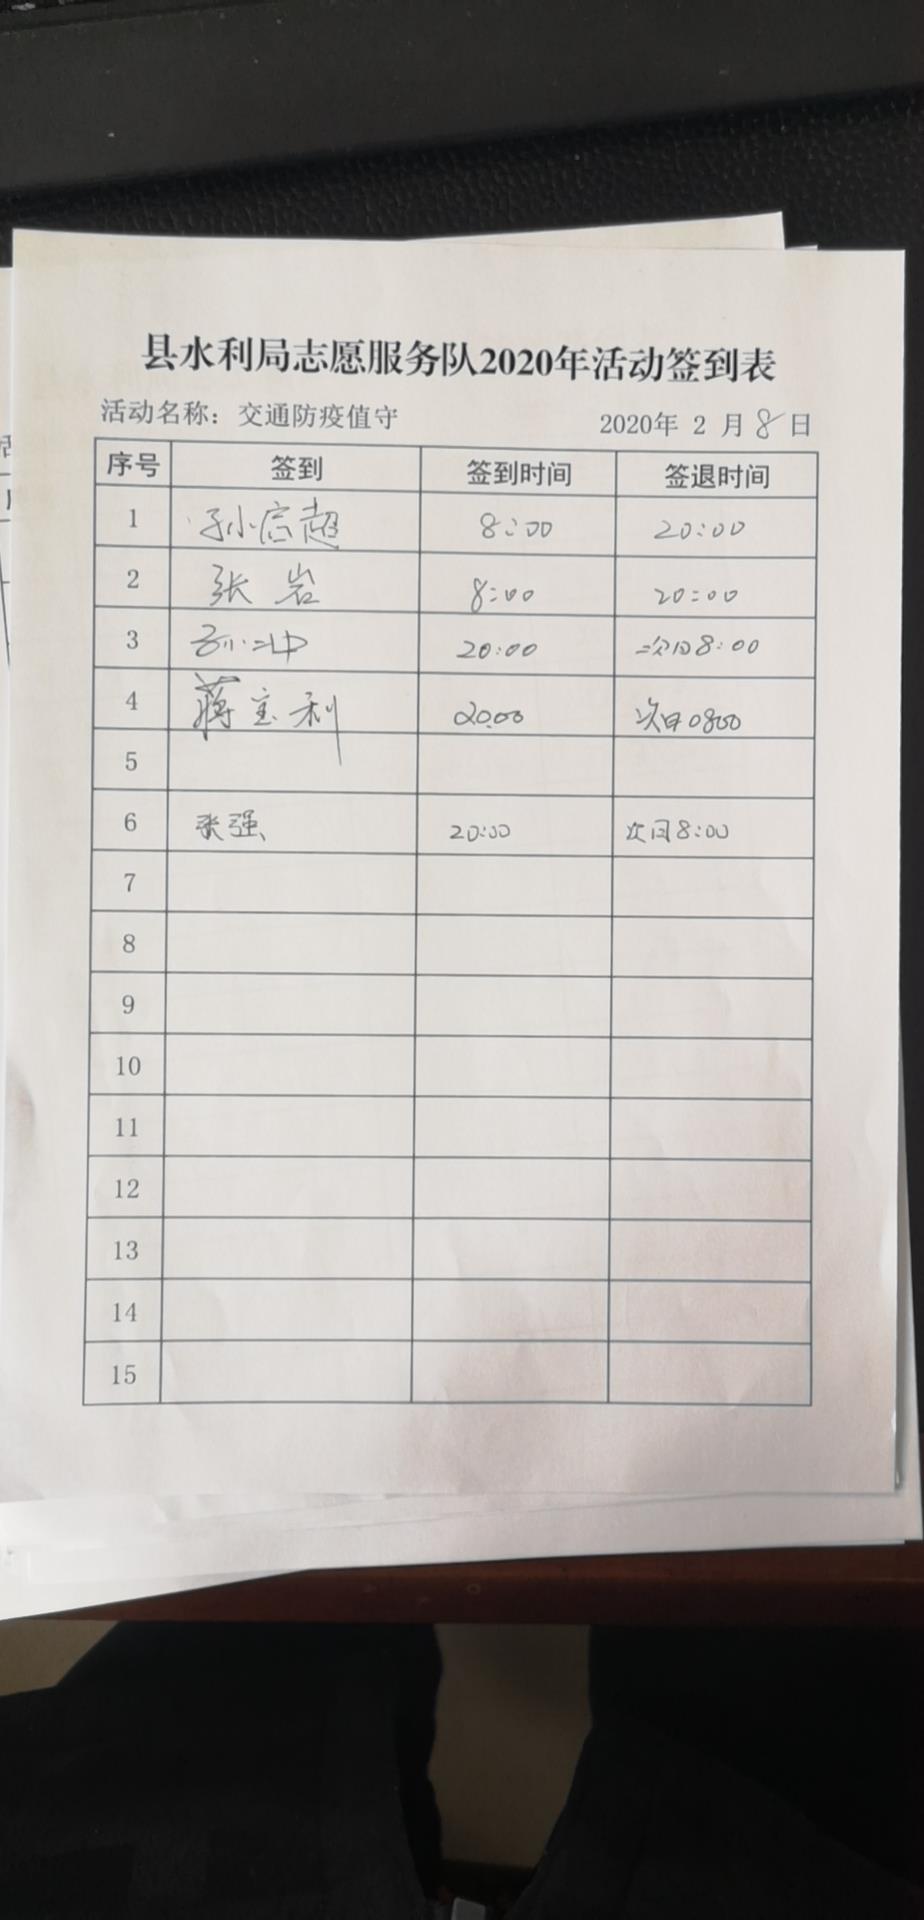 县水利局志愿服务队2020年活动签到表
活动名称：交通防疫值守 2020年 2 月 8 日
序号 签到 签到时间 签退时间
1 孙启超 8:00 20:00
2 张岩 8:00 20:00
3 20:00 次日8:00
4 蒋宝利 20:00 次日0800
5
6 张强 20:00 次日8:00
7
8
9
10
11
12
13
14
15